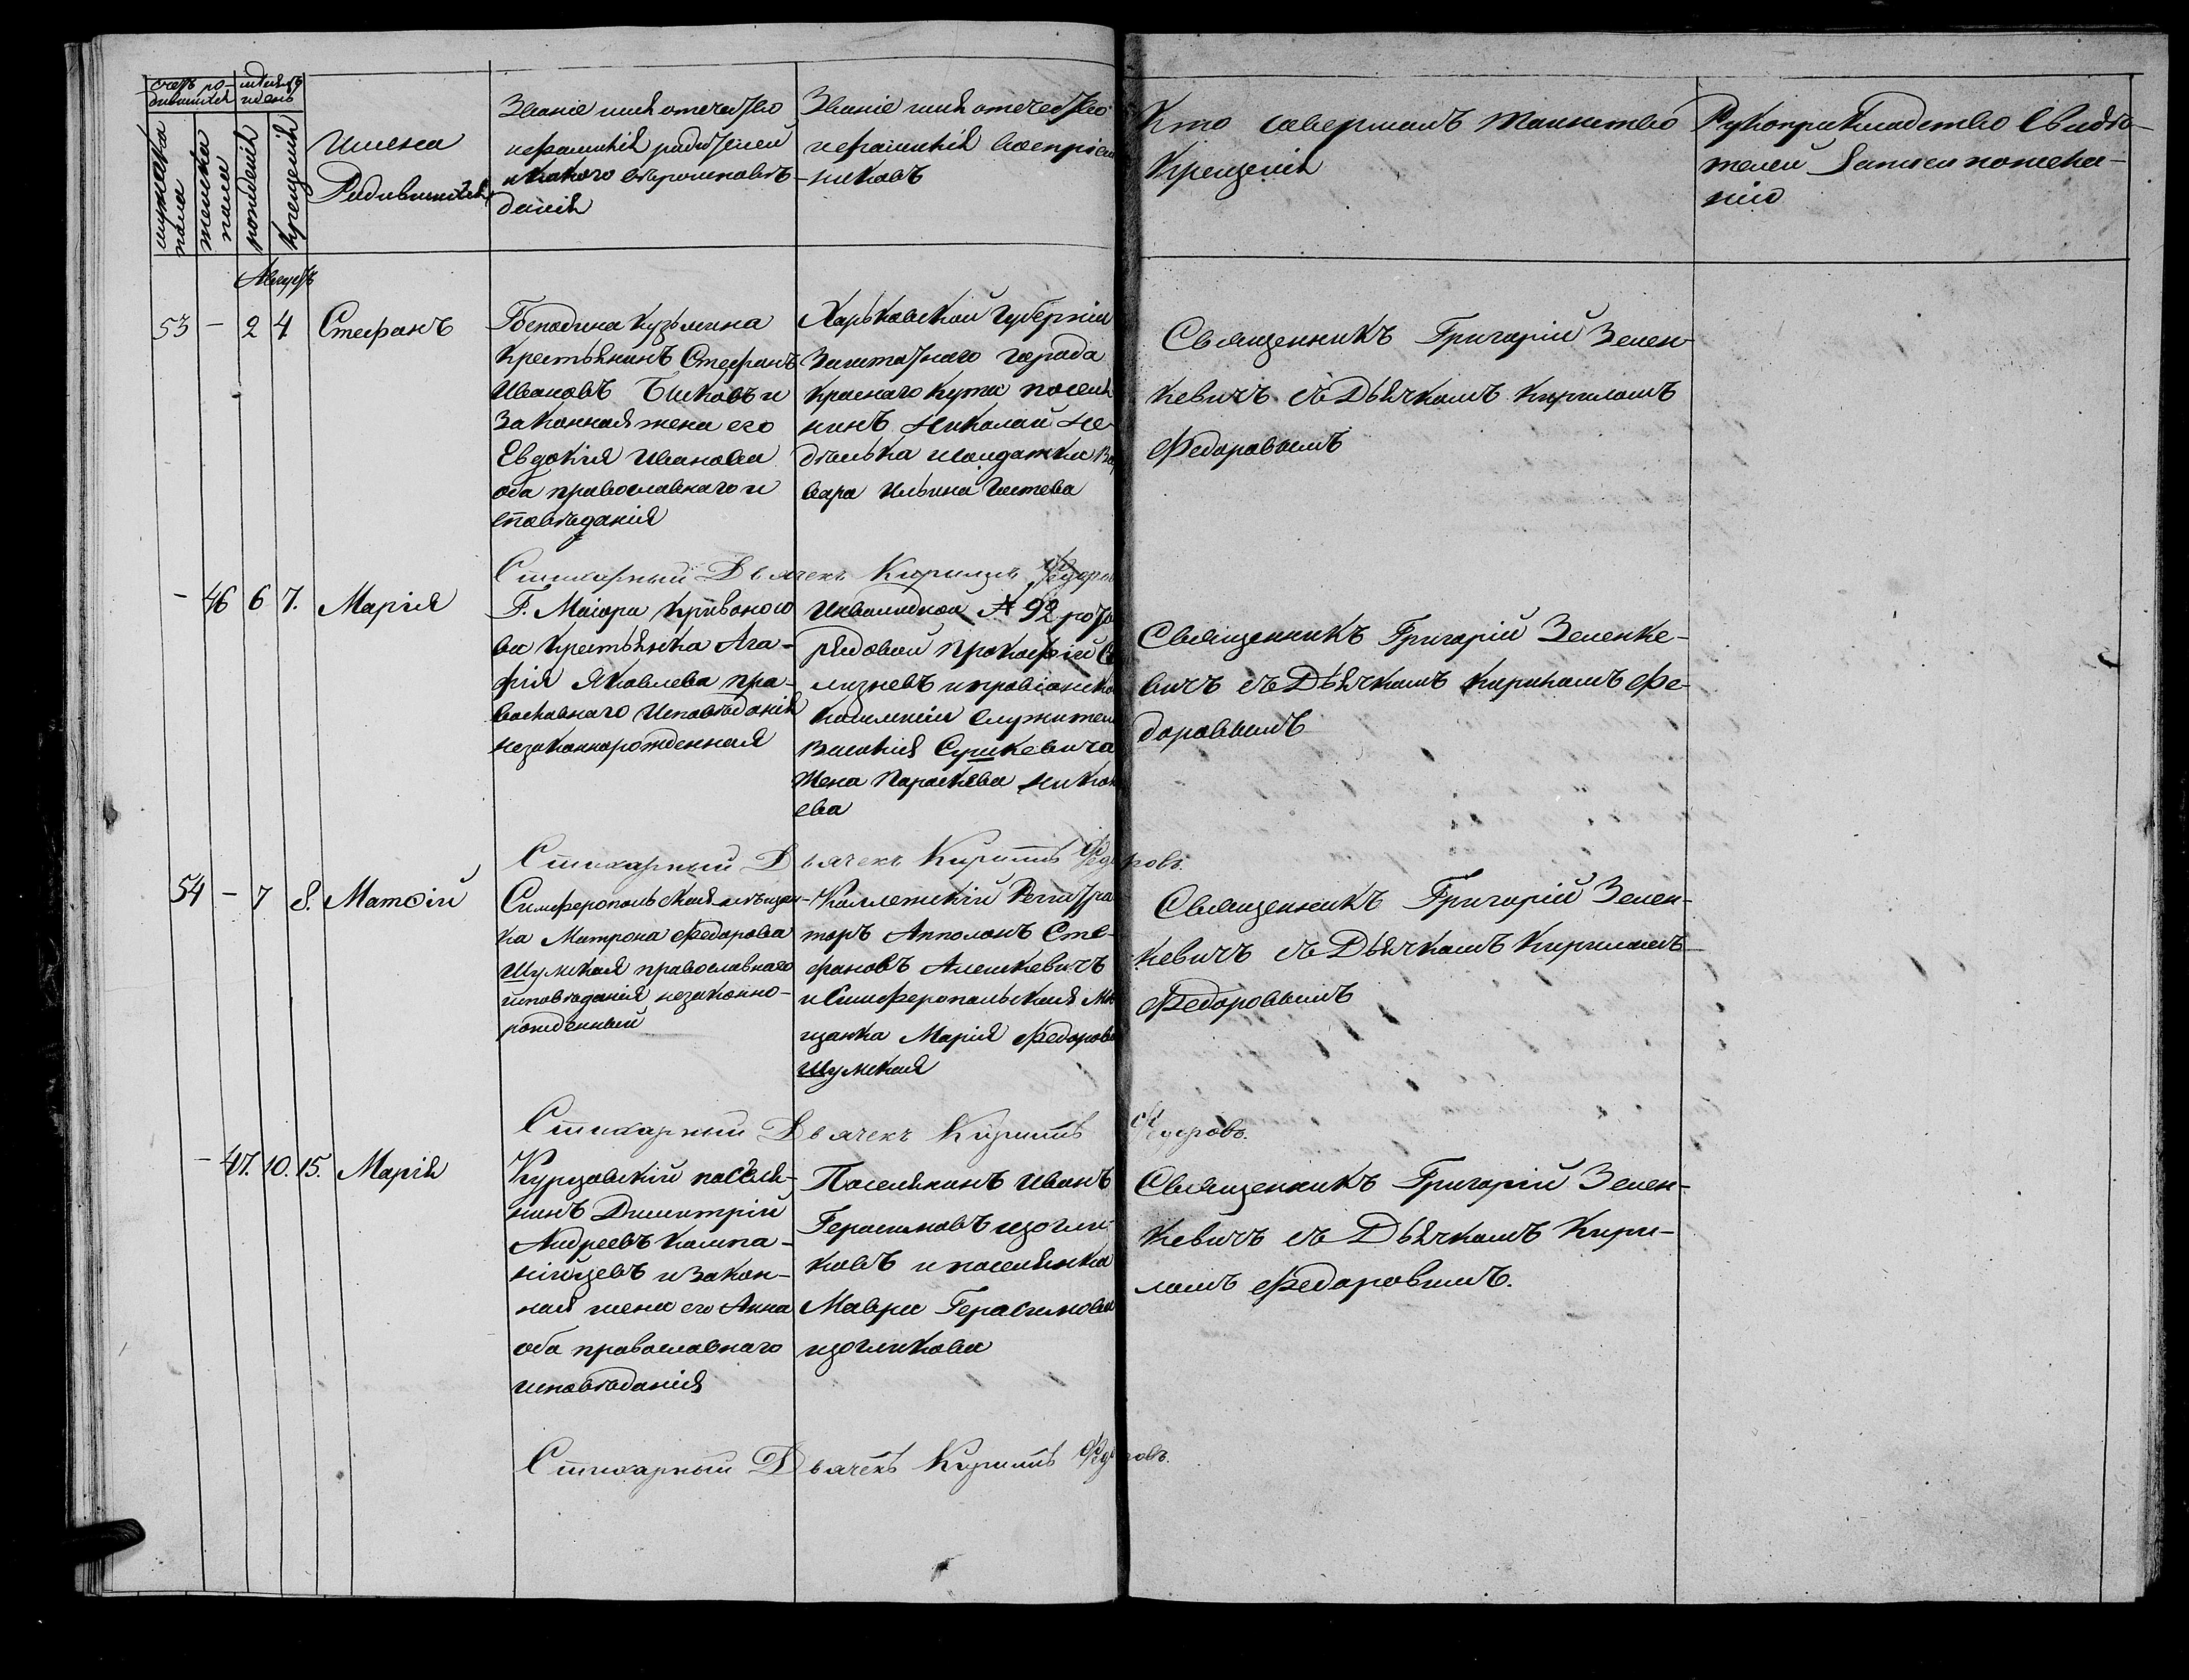 счетъ ро-
дившихся
мѣсяцъ
и день
мужеска
пола
женска
пола
рожденія
крещенія
Имена
Родившихся
Званіе имя отечество
и фамилія родителей
и какого вѣроисповѣ-
данія
Званіе имя отечество
и фамилія воспріем
никовъ
Кто совершалъ таинство
Крещенія
Рукоприкладство Свидѣ-
телей записи по жела-
нію
Августъ
53 - 2 4 Стефанъ
Господина Кузьмина
Крестьянинъ Стефанъ
Ивановъ Быковъ и
Законная жена его
Евдокія Иванова
оба православнаго и
сповѣданія
Харьковской Губерніи
Заштатнаго города
Краснаго Кута поселя
нинъ Николай Не-
дѣлька и солдатка Вар
вара Ильина
Священникъ Григорій Зелен-
кевичъ съ Дьячкомъ Кириломъ
Федоровымъ
Стихарный Дьячекъ Кирилъ Федоров
- 46 6 7. Марія
Г. Маіора Кривоносо
ва крестьянка Ага-
фія Яковлева пра-
вославнаго Исповѣданія
незаконнорожденная
Инвалидной № 92 роты
рядовой Прокофій
и провіантской
Коммисіи служителя
Василія Сушкевича
Жена Параскева Никон
ева
Священникъ Григорій Зеленке-
вичъ съ Дьячкомъ Кириломъ Фе-
доровымъ
Стихарный Дьячекъ Кирилъ Федоровъ.
54 - 7 8. Матѳій
Симферопольская мѣщан-
ка Матрона Федорова
Шумская православнаго
исповѣданія незаконно-
рожденный
Коллежскій Регистра
торъ Апполонъ Сте-
фановъ Алешкевичъ
и Симферопольская Мѣ
щанка Марія Федорова
Шумская
Священникъ Григорій Зелен-
кевичъ съ Дьячкомъ Кириломъ
Федоровымъ
Стихарный Дьячекъ Кирилъ Федоровъ.
- 47. 10. 15. Марія
Курцовскій поселя-
нинъ Димитрій
Андреевъ Компа-
нійцевъ и Закон-
ная жена его Анна
оба православнаго
исповѣданія
Поселянинъ Иванъ
Герасимовъ Щогли-
ковъ и поселянка
Мавра Герасимова
Щогликова
Священникъ Григорій Зелен-
кевичъ съ Дьячкомъ Кири-
ломъ Федоровымъ.
Стихарный Дьячекъ Кирилъ Федоровъ.